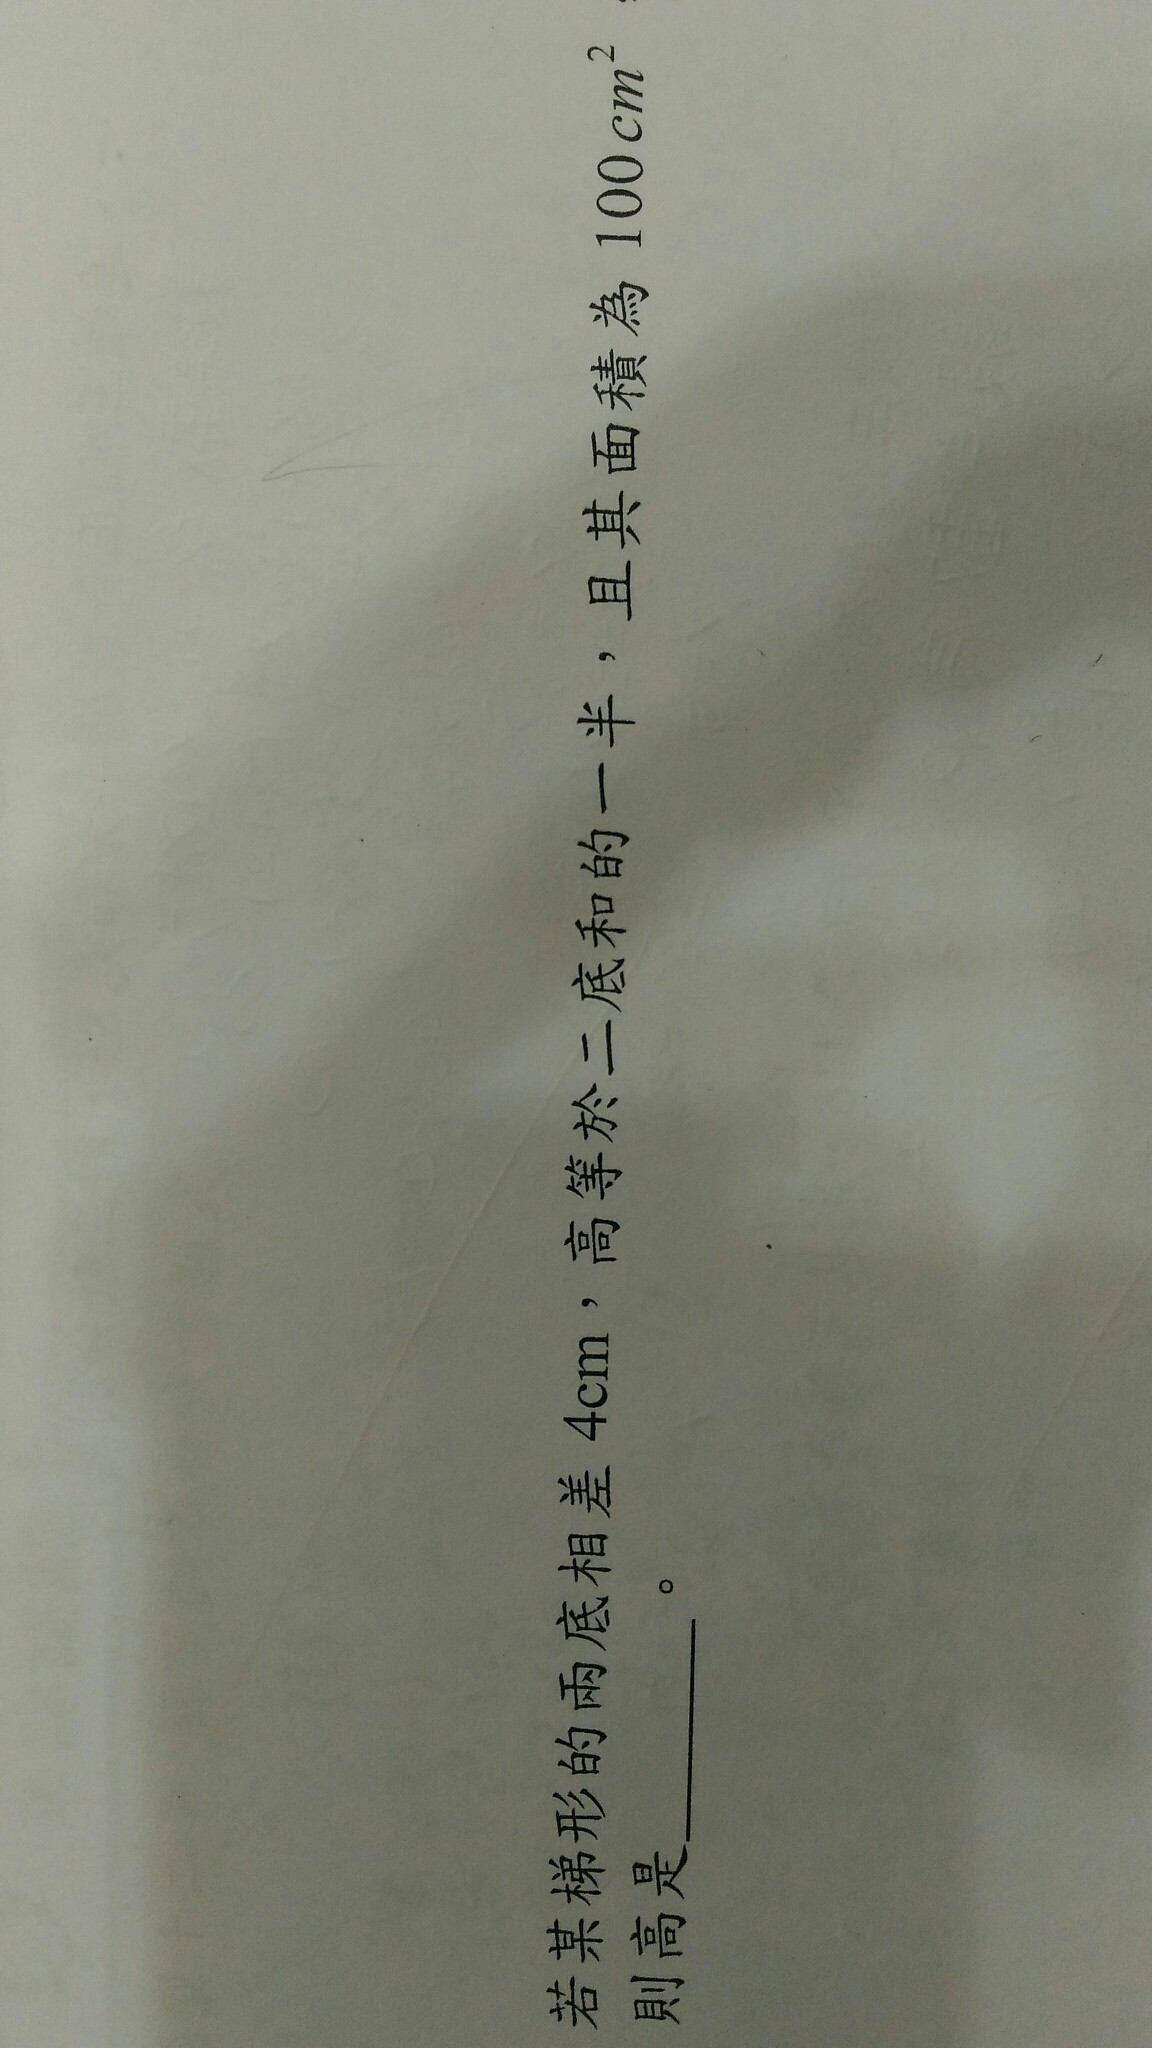 若某梯形的兩底相差 4cm，高等於二底和的一半，且其面積為 100 cm²，
則高是______。